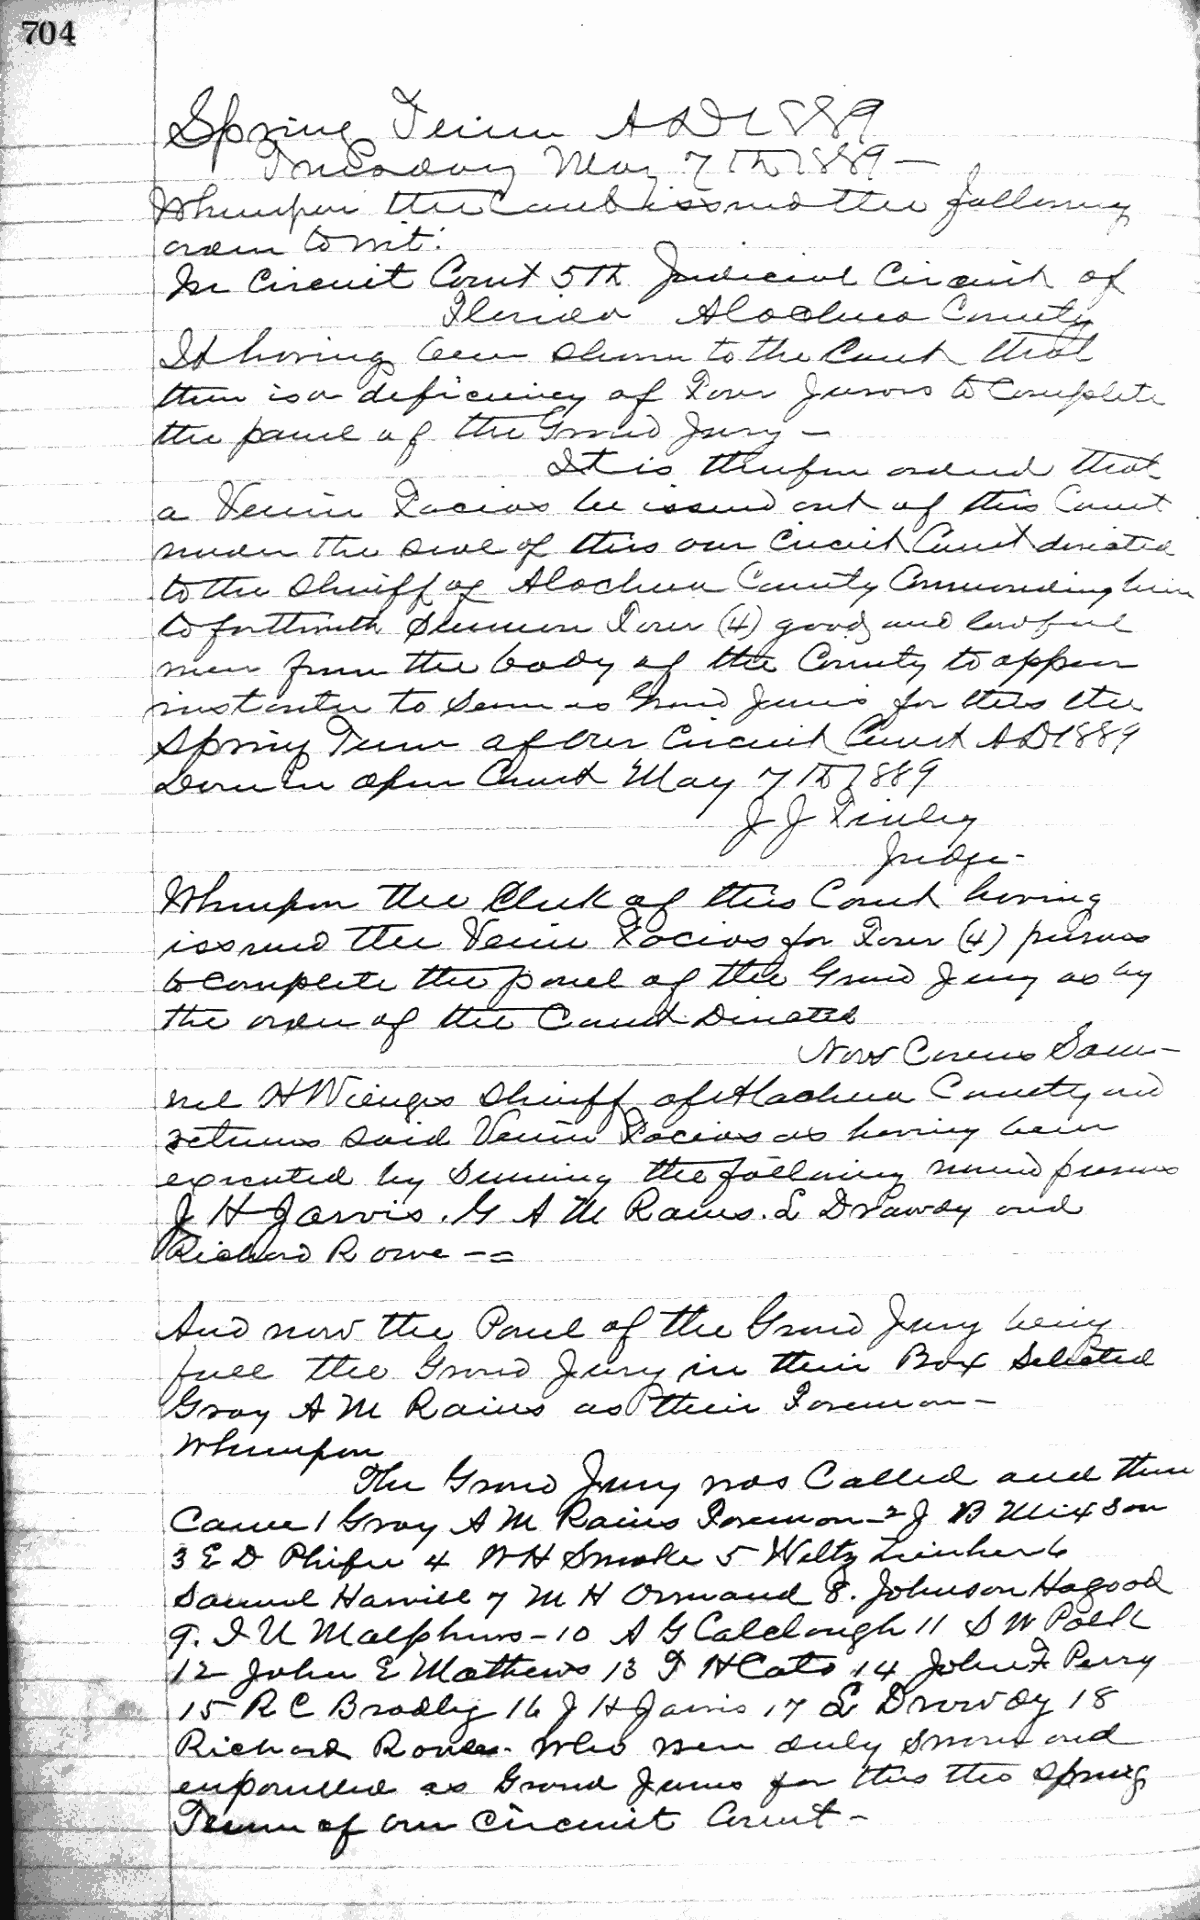 704
Spring Term A D 1889
Tuesday May 7th 1889 —
Whereupon the Court issued the following
order to wit:
In Circuit Court 5th Judicial Circuit of
Florida Alachua County
It having been shown to the Court that
there is a deficiency of Four Jurors to Complete
the panel of the Grand Jury —
It is therefore ordered that
a Venire Facias be issued out of this Court
under the seal of this our Circuit Court directed
to the Sheriff of Alachua County Commanding him
to forthwith Summon Four (4) good and lawful
men from the body of the County to appear
instanter to serve as Grand Jurors for this the
Spring Term of Our Circuit Court A D 1889
Done in open Court May 7th 1889
J J Finley
Judge -
Whereupon the Clerk of this Court having
issued the Venire Facias for Four (4) persons
to Complete the panel of the Grand Jury as by
the order of the Court Directed
Now Comes Sam-
uel H Wienges Sheriff of Alachua County and
returns said Venire Facias as having been
executed by Summing the following named persons
J H Jarvis. G A M Rains. L Drawdy and
Richard Rowe - =
And now the Panel of the Grand Jury being
full the Grand Jury in their Box Selected
Gray A M Rains as their Foreman —
Whereupon
The Grand Jury was Called and there
Came 1 Gray A M Rains Foreman - 2 J B Mixson
3 E D Phifer 4 W H Smoke 5 Weltz 6
Samuel Harvill 7 M H Ormand 8. Johnson Hagood
9. I U Malphurs - 10 A G Calclough 11 S W Polk
12 John E Mathews 13 T H Cato 14 John F. Perry
15 R C Bradley 16 J H Jarvis 17 L Drawdy 18
Richard Rowe. Who were duly sworn and
enpanelled as Grand Jurors for this the Spring
Term of our Circuit Court —